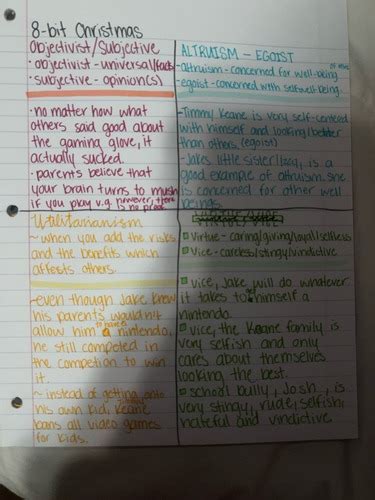 8-bit Christmas
Objectivist/Subjective
• objectivist - universal/facts
• subjective - opinion(s)
• no matter how what
others said good about
the gaming glove, it
actually sucked.
• parents believe that
your brain turns to mush
if you play v.g. however, there
is no proof
ALTRUISM - EGOIST
of others
- altruism - concerned for well-being
- egoist - concerned with self well being.
- Timmy Keane is very self-centered
with himself and looking better
than others. (egoist)
- Jakes little sister, is a
good example of altruism. She
is concerned for other well
beings.
Utilitarianism
~ when you add the risks
and the benefits which
affects others.
~ even though Jake knew
his parents wouldn't
allow him to have a nintendo,
he still competed in
the competion to win
it.
~ instead of getting onto
his own kid, Keane
bans all video games
for kids.
VIRTUE/VICE
Virtue - caring/giving/loyal/selfless
Vice - careless/stingy/vindictive
vice, Jake will do whatever
it takes to himself a
nintendo.
vice, the Keane family is
very selfish and only
cares about themselves
looking the best.
school bully, Josh, is
very stingy, rude, selfish,
hateful and vindictive